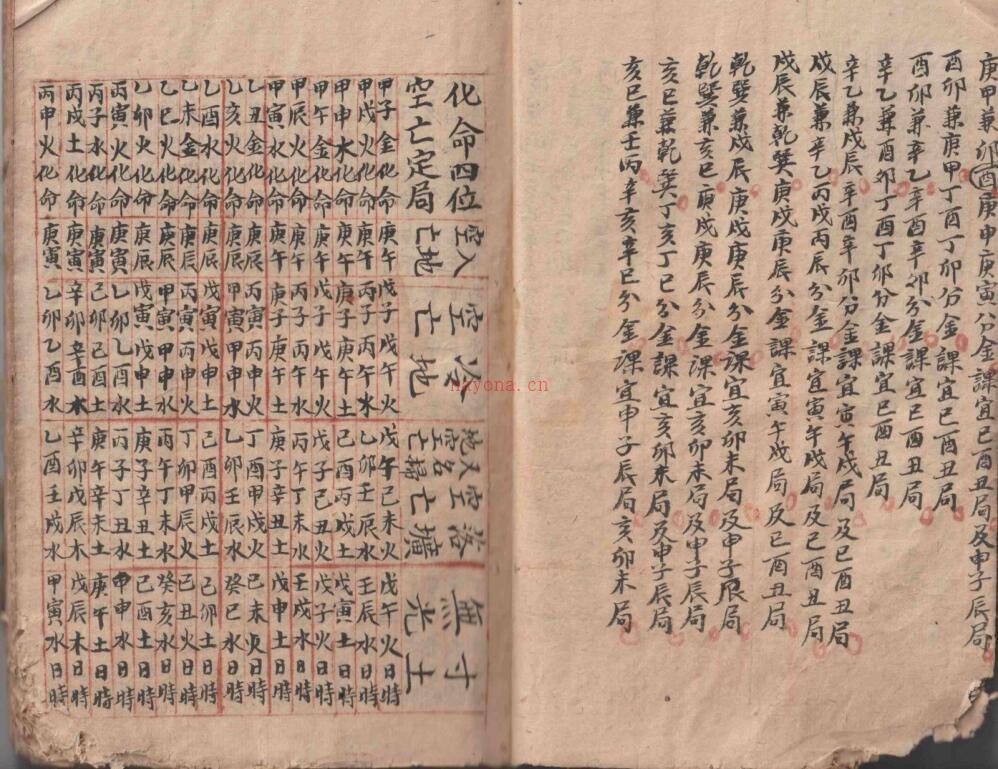 庚甲兼卯酉庚申庚寅分金課宜巳酉丑局及申子辰局
酉卯兼庚甲丁酉丁卯分金課宜巳酉丑局
酉卯兼辛乙辛酉辛卯分金課宜巳酉丑局
辛乙兼酉卯丁酉丁卯分金課宜巳酉丑局
辛乙兼戌辰辛酉辛卯分金課宜寅午戌局及巳酉丑局
戌辰兼辛乙丙戌丙辰分金課宜寅午戌局及巳酉丑局
戌辰兼乾巽庚戌庚辰分金課宜寅午戌局及巳酉丑局
乾巽兼戌辰庚戌庚辰分金課宜亥卯未局及申子辰局
乾巽兼亥巳庚戌庚辰分金課宜亥卯未局及申子辰局
亥巳兼乾巽丁亥丁巳分金課宜亥卯未局及申子辰局
亥巳兼壬丙辛亥辛巳分金課宜申子辰局亥卯未局
化命四位
空亡定局
入地空亡
冷地空亡
天地空亡名掃
落壙空亡
寸土無光
甲子金化命 庚午 戊子戊午火 戊午己未火 戊午火日時
甲戌火化命 庚午 丙子丙午水 乙卯壬辰水 壬辰水日時
甲申水化命 庚午 庚子庚午土 己酉丙戌土 戊寅土日時
甲午金化命 庚午 戊子戊午火 戊子己丑火 戊子火日時
甲辰火化命 庚午 丙子丙午水 丙午丁未水 壬戌水日時
甲寅水化命 庚午 庚子庚午土 庚子辛丑土 戊申土日時
乙丑金化命 庚辰 丙寅丙申火 丁酉甲戌火 己未火日時
乙亥火化命 庚辰 甲寅甲申水 乙卯壬辰水 癸巳水日時
乙酉水化命 庚辰 戊寅戊申土 己酉丙戌土 己卯土日時
乙未金化命 庚辰 丙寅丙申火 丁卯甲辰火 己丑火日時
乙巳火化命 庚辰 甲寅甲申水 丙午丁未水 癸亥水日時
乙卯火化命 庚辰 戊寅戊申土 庚子辛丑土 己酉土日時
丙寅火化命 庚寅 乙卯乙酉水 丙子丁丑水 甲申水日時
丙子水化命 庚寅 己卯己酉土 庚午辛未土 庚午土日時
丙戌土化命 庚寅 辛卯辛酉木 辛卯戊辰木 戊辰木日時
丙申火化命 庚寅 乙卯乙酉水 乙酉壬戌水 甲寅水日時
nayona.cn